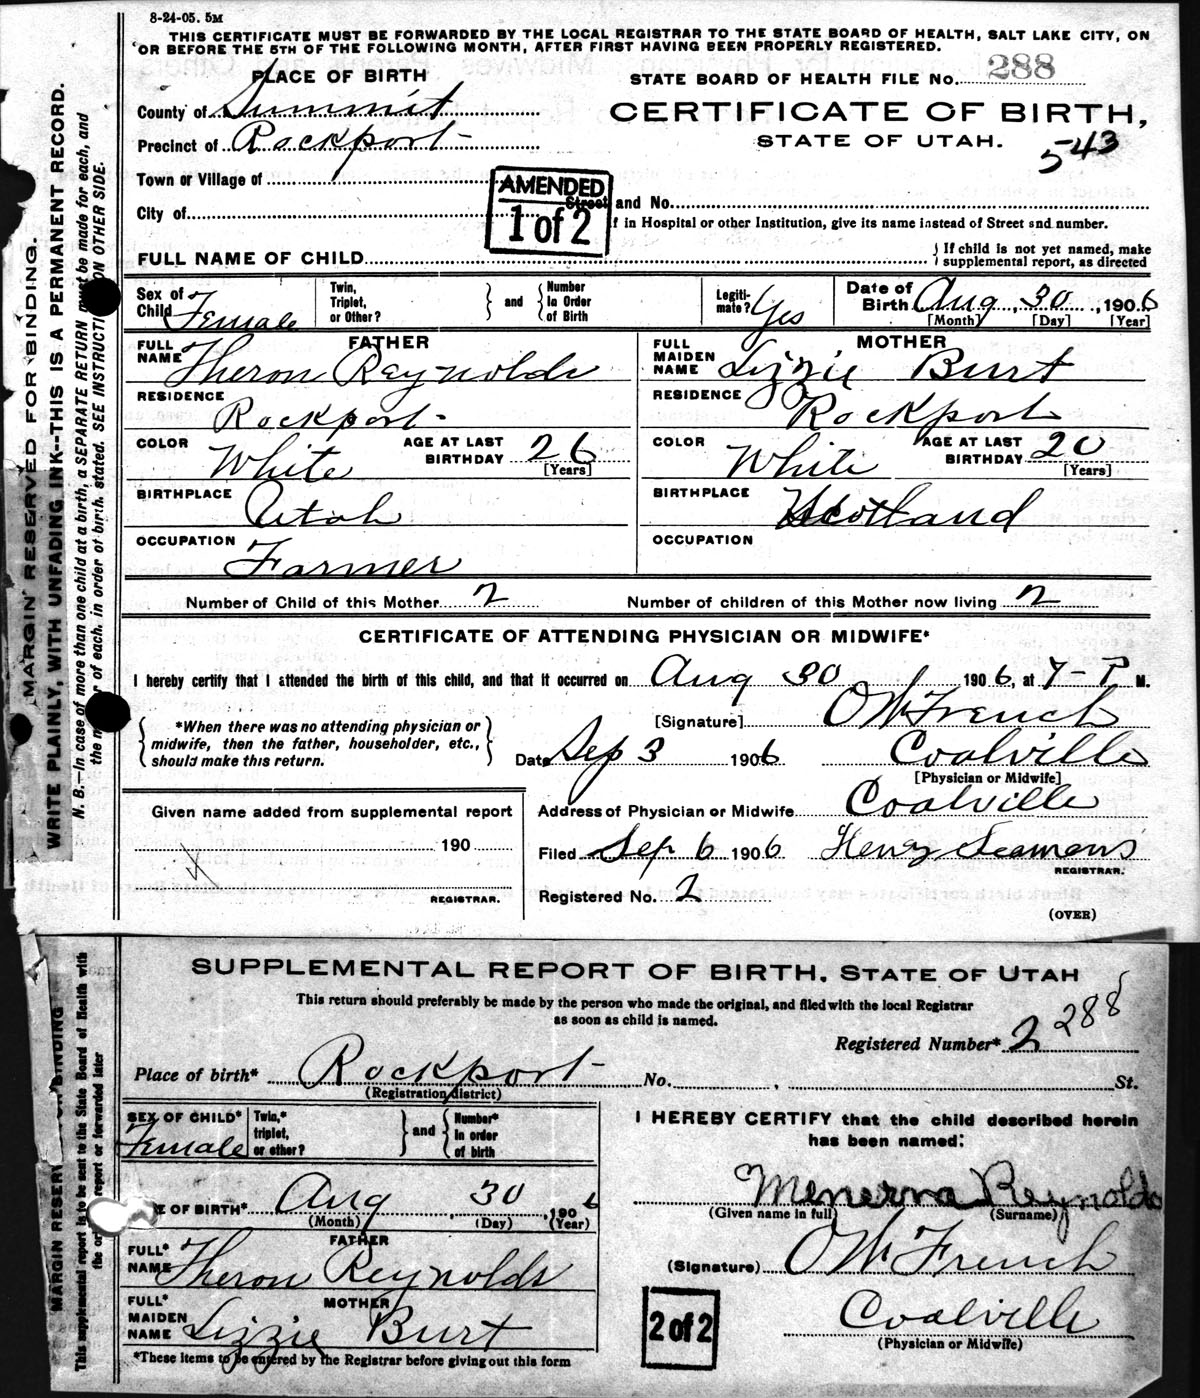 8-24-05. 5M
THIS CERTIFICATE MUST BE FORWARDED BY THE LOCAL REGISTRAR TO THE STATE BOARD OF HEALTH, SALT LAKE CITY, ON
OR BEFORE THE 5TH OF THE FOLLOWING MONTH, AFTER FIRST HAVING BEEN PROPERLY REGISTERED.
PLACE OF BIRTH
STATE BOARD OF HEALTH FILE No. 288
County of Summit
CERTIFICATE OF BIRTH,
Precinct of Rockport
STATE OF UTAH.
543
Town or Village of
AMENDED
1 of 2
City of
Street and No.
f in Hospital or other Institution, give its name instead of Street snd number.
FULL NAME OF CHILD
{ If child is not yet named, make
supplemental report, as directed
Sex of Child Female
Twin, Triplet, or Other?
} and {
Number In Order of Birth
Legiti-mate? Yes
Date of Birth Aug 30, 1906
[Month] [Day] [Year]
FATHER
FULL NAME Theron Reynolds
MOTHER
FULL MAIDEN NAME Lizzie Burt
RESIDENCE Rockport
RESIDENCE Rockport
COLOR White
AGE AT LAST BIRTHDAY 26 [Years]
COLOR White
AGE AT LAST BIRTHDAY 20 [Years]
BIRTHPLACE Utah
BIRTHPLACE Scotland
OCCUPATION Farmer
OCCUPATION
Number of Child of this Mother 2
Number of children of this Mother now living 2
CERTIFICATE OF ATTENDING PHYSICIAN OR MIDWIFE*
I hereby certify that I attended the birth of this child, and that it occurred on Aug 30 1906, at 7- P M.
{ *When there was no attending physician or
midwife, then the father, householder, etc.,
should make this return. }
[Signature] O W French
Date Sep 3 1906
Coalville
[Physician or Midwife]
Given name added from supplemental report
Address of Physician or Midwife Coalville
190
Filed Sep 6 1906 Henry Seamons
REGISTRAR.
REGISTRAR.
Registered No. 2
(OVER)
MARGIN RESERVED FOR BINDING.
WRITE PLAINLY, WITH UNFADING INK--THIS IS A PERMANENT RECORD.
N. B.—In case of more than one child at a birth, a SEPARATE RETURN must be made for each, and
the n r of each, in order of birth, stated. SEE INSTRUCTI ON OTHER SIDE.
SUPPLEMENTAL REPORT OF BIRTH, STATE OF UTAH
This return should preferably be made by the person who made the original, and filed with the local Registrar
as soon as child is named.
Registered Number* 2 288
Place of birth* Rockport No. , St.
(Registration district)
SEX OF CHILD* Female
Twin,* triplet, or other?
} and {
Number* in order of birth
I HEREBY CERTIFY that the child described herein
has been named:
Menerva Reynolds
(Given name in full) (Surname)
E OF BIRTH* Aug 30, 1906
(Month) (Day) (Year)
FATHER
FULL* NAME Theron Reynolds
(Signature) O W French
MOTHER
FULL* MAIDEN NAME Lizzie Burt
2 of 2
Coalville
(Physician or Midwife)
*These items to be entered by the Registrar before giving out this form
MARGIN RESERV BINDING
This supplemental report is to be sent to the State Board of Health with
the or report or forwarded later